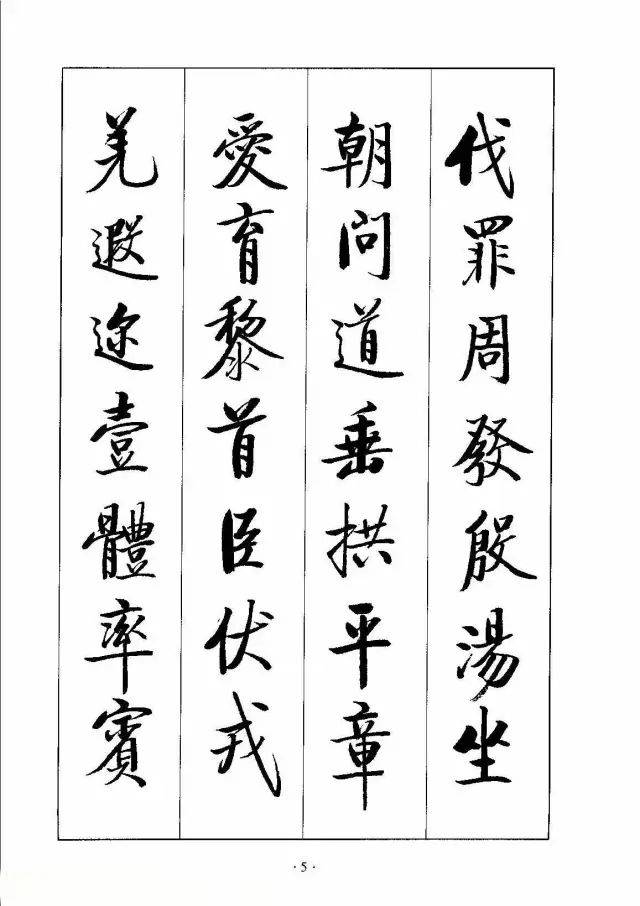 伐罪周發殷湯坐
朝問道垂拱平章
愛育黎首臣伏戎
羌遐迩壹體率賓
·5·